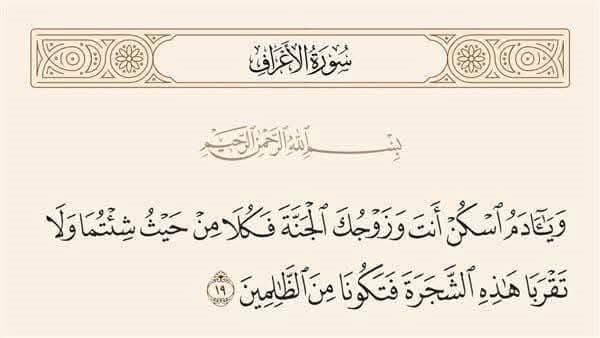 سُورَةُ الأَعْرَافِ
بِسْمِ ٱللَّهِ ٱلرَّحْمَٰنِ ٱلرَّحِيمِ
وَيَٰٓـَٔادَمُ ٱسْكُنْ أَنتَ وَزَوْجُكَ ٱلْجَنَّةَ فَكُلَا مِنْ حَيْثُ شِئْتُمَا وَلَا
تَقْرَبَا هَٰذِهِ ٱلشَّجَرَةَ فَتَكُونَا مِنَ ٱلظَّٰلِمِينَ ١٩